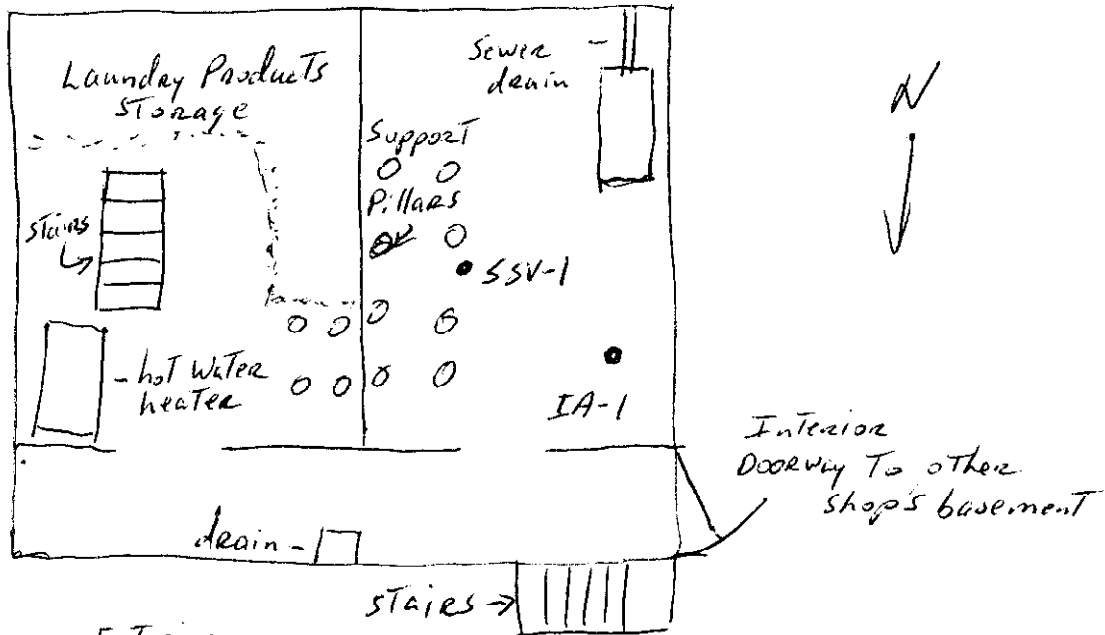 Laundry Products
Storage
Sewer
drain
N
Support
Pillars
stairs
SSV-1
hot water
heater
IA-1
Interior
Doorway To other
shop's basement
drain
stairs